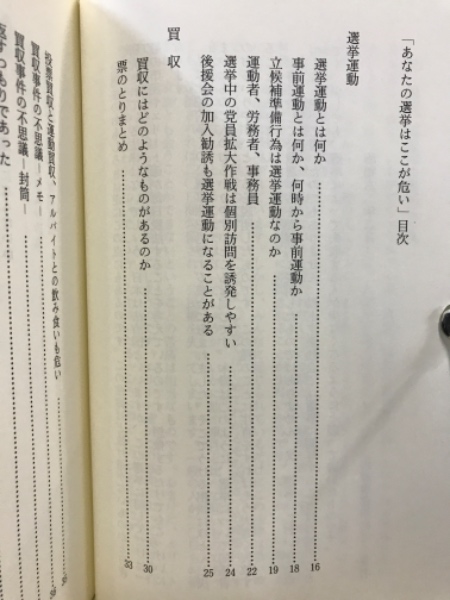 「あなたの選挙はここが危い」目次
選挙運動
選挙運動とは何か……16
事前運動とは何か、何時から事前運動か……18
立候補準備行為は選挙運動なのか……19
運動者、労務者、事務員……22
選挙中の党員拡大作戦は個別訪問を誘発しやすい……24
後援会の加入勧誘も選挙運動になることがある……25
買収
買収にはどのようなものがあるのか……30
票のとりまとめ……33
投票買収と運動買収、アルバイトとの飲み食いも危い……
買収事件の不思議―メモ―……
買収事件の不思議―封筒―……
返すつもりであった……